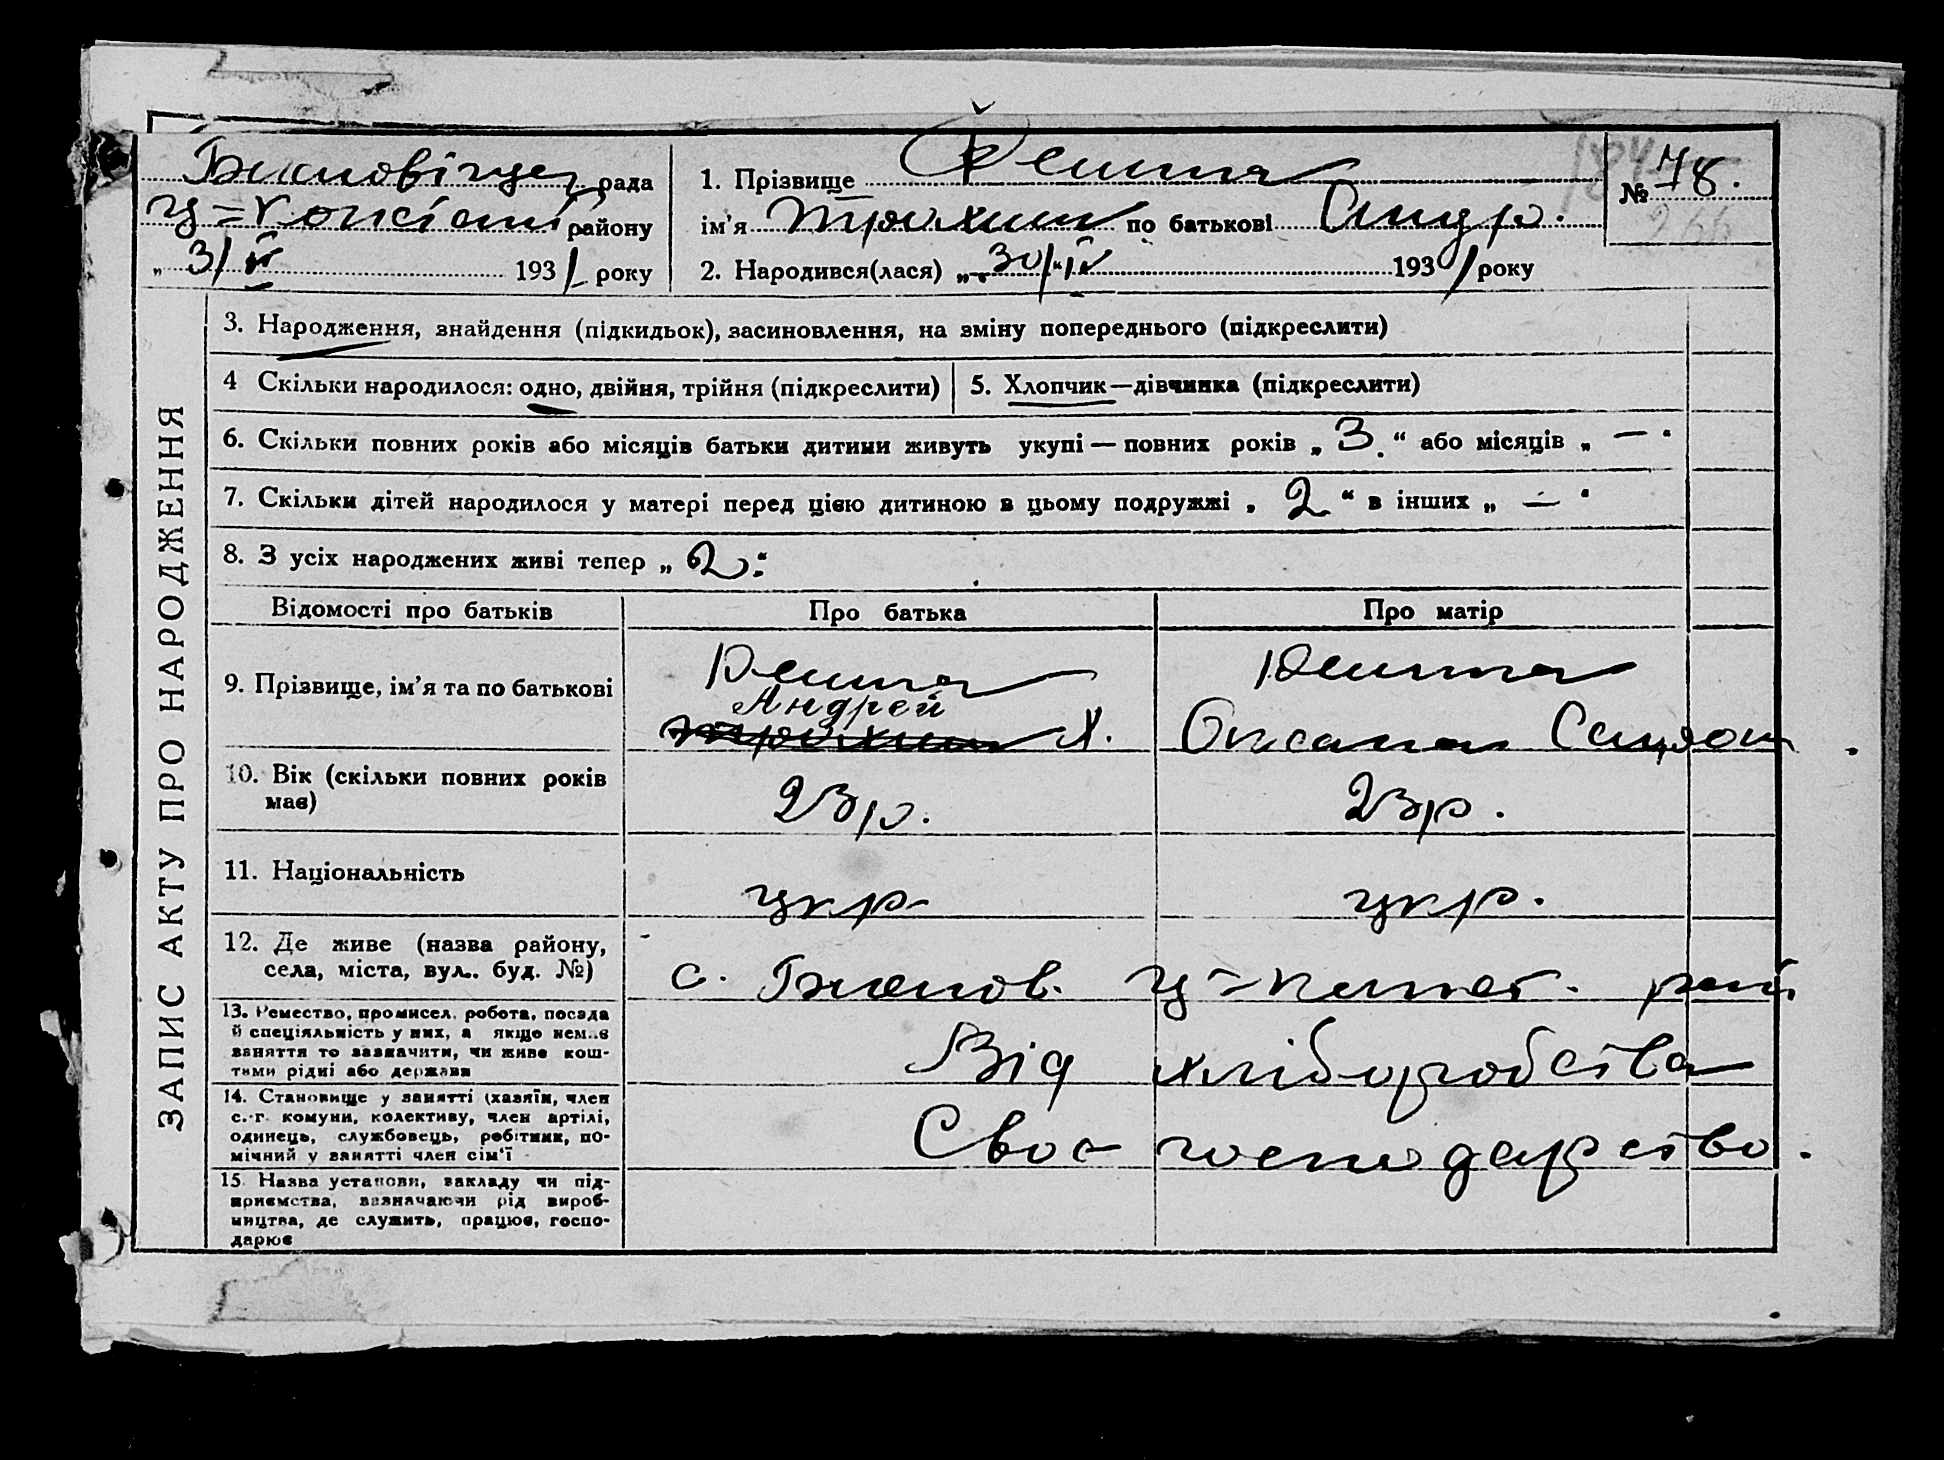 рада
району
„ 3/V 1931 року
1. Прізвище
ім’я Трохим по батькові Андр.
2. Народився(лася) „ 30/IV 1931 року
№ 78.
184
266
ЗАПИС АКТУ ПРО НАРОДЖЕННЯ
3. Народження, знайдення (підкидьок), засиновлення, на зміну попереднього (підкреслити)
4 Скільки народилося: одно, двійня, трійня (підкреслити)
5. Хлопчик—дівчинка (підкреслити)
6. Скільки повних років або місяців батьки дитини живуть укупі — повних років „ 3. “ або місяців „ — “
7. Скільки дітей народилося у матері перед цією дитиною в цьому подружжі „ 2 “ в інших „ — “
8. З усіх народжених живі тепер „ 2 “
Відомості про батьків
Про батька
Про матір
9. Прізвище, ім’я та по батькові
Андрей
Трохим Х.
Оксана
10. Вік (скільки повних років
має)
23 р.
23 р.
11. Національність
укр.
укр.
12. Де живе (назва району,
села, міста, вул.. буд. №)
с. рай
13. Ремество, промисел, робота, посада
й спеціяльність у них, а якщо немає
заняття то зазначити, чи живе кош-
тами рідні або держави
Від хліборобства
14. Становище у занятті (хазяїн, член
с.-г. комуни, колективу, член артілі,
одинець, службовець, робітник, по-
мічний у занятті член сім’ї
Своє господарство.
15. Назва установи, закладу чи під-
приємства, визначаючи рід вироб-
ництва, де служить, працює, госпо-
дарює